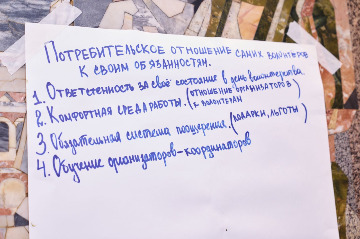 Потребительское отношение самих волонтеров
к своим обязанностям.
1. Ответственность за своё состояние в день волонтерства.
2. Комфортная среда работы. (отношение организаторов
к волонтерам)
3. Обязательная система поощрения. (подарки, льготы)
4. Обучение организаторов-координаторов